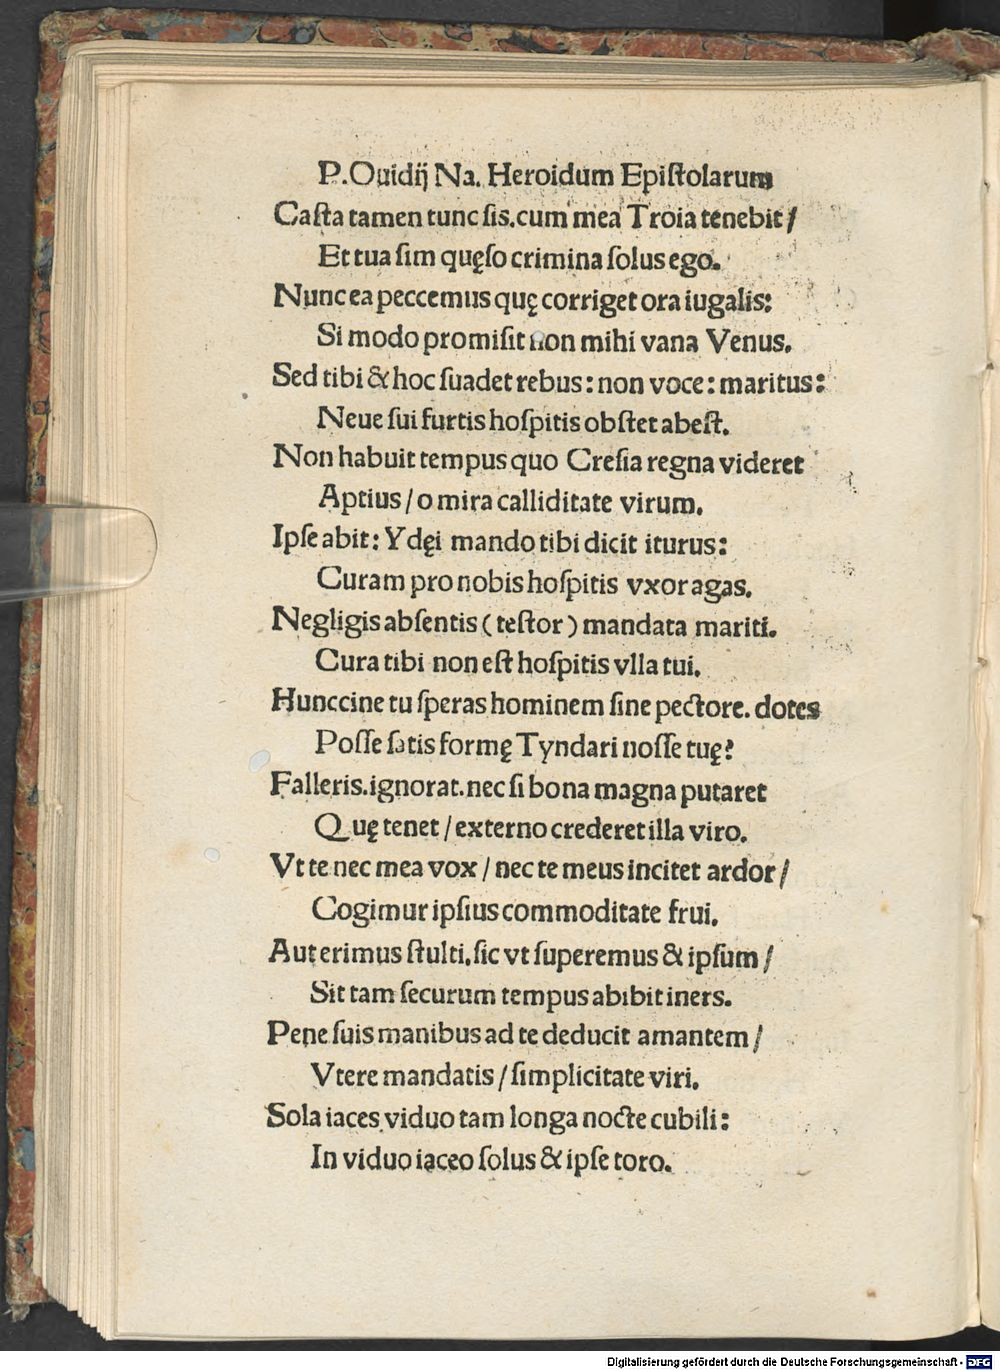 P.Ouidij Na. Heroidum Epiſtolarum
Caſta tamen tunc ſis.cum mea Troia tenebit /
Et tua ſim quęſo crimina ſolus ego.
Nunc ea peccemus quę corriget ora iugalis:
Si modo promiſit non mihi vana Venus.
Sed tibi & hoc ſuadet rebus: non voce: maritus:
Neue ſui furtis hoſpitis obſtet abeſt.
Non habuit tempus quo Creſia regna videret
Aptius / o mira calliditate virum.
Ipſe abit: Ydęi mando tibi dicit iturus:
Curam pro nobis hoſpitis vxor agas.
Negligis abſentis (teſtor) mandata mariti.
Cura tibi non eſt hoſpitis vlla tui.
Hunccine tu ſperas hominem ſine pectore. dotes
Poſſe ſatis formę Tyndari noſſe tuę?
Falleris.ignorat.nec ſi bona magna putaret
Quę tenet / externo crederet illa viro.
Vt te nec mea vox / nec te meus incitet ardor /
Cogimur ipſius commoditate frui.
Aut erimus ſtulti.ſic vt ſuperemus & ipſum /
Sit tam ſecurum tempus abibit iners.
Pene ſuis manibus ad te deducit amantem /
Vtere mandatis / ſimplicitate viri.
Sola iaces viduo tam longa nocte cubili:
In viduo iaceo ſolus & ipſe toro.
Digitalisierung gefördert durch die Deutsche Forschungsgemeinschaft - DFG